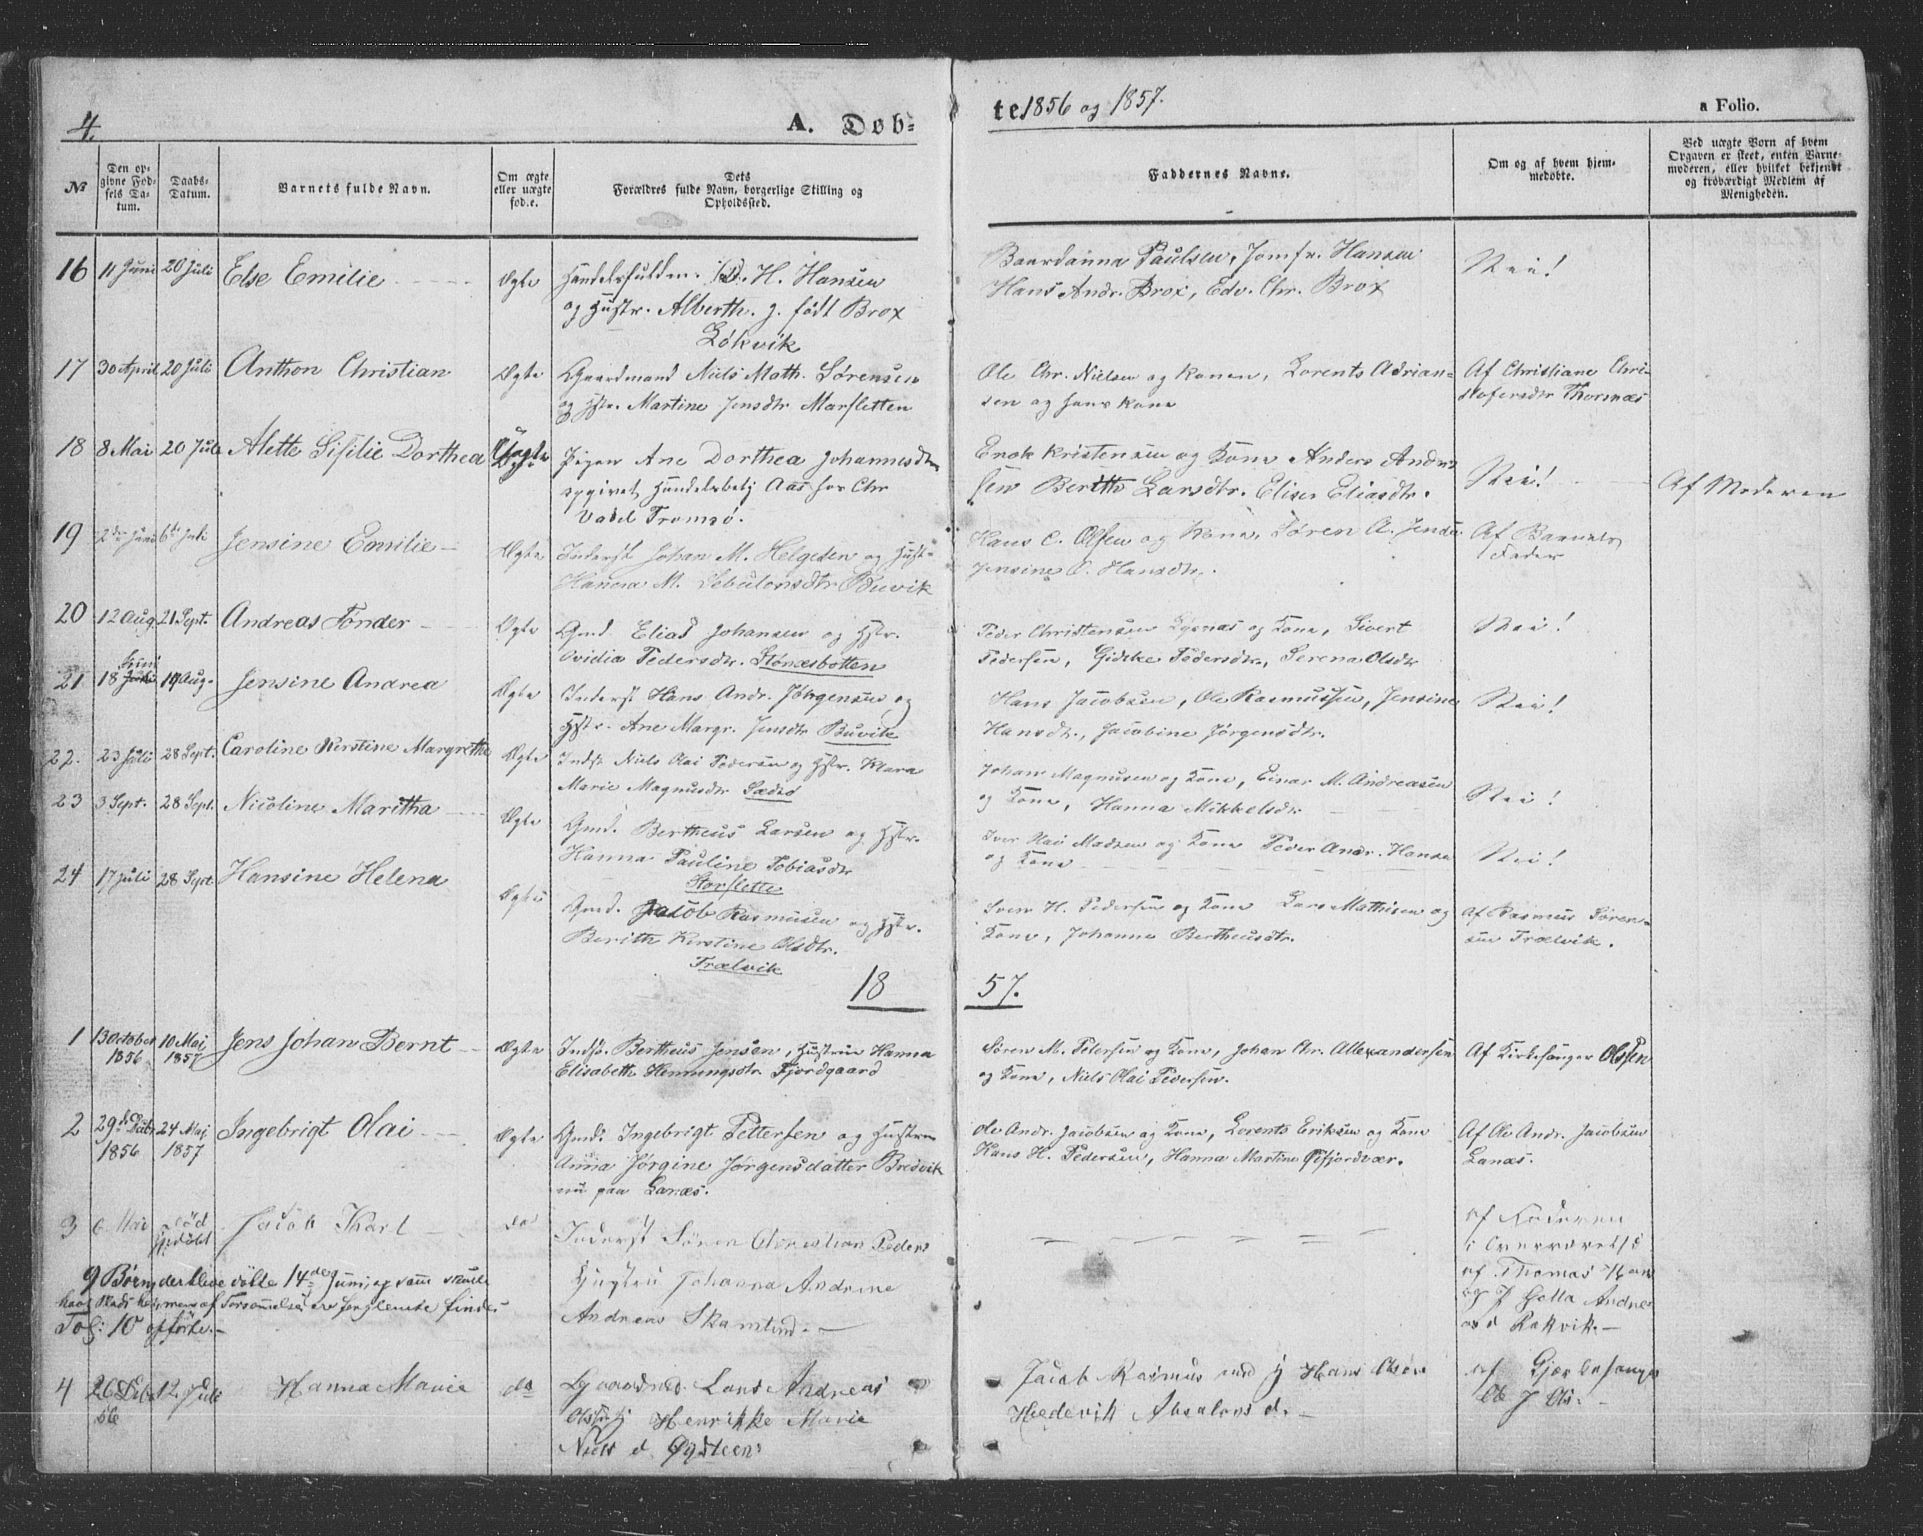 4.
A. Døb=
te 1856 og 1857.
a Folio.
No
Den op=
givne Fød=
sels Da=
tum.
Daabs=
Datum.
Barnets fulde Navn.
Om ægte
eller uægte
fød.e.
Dets
Forældres fulde Navn, borgerlige Stilling og
Opholdssted.
Faddernes Navne.
Om og af hvem hjem=
medøbte.
Ved uægte Børn af hvem
Opgaven er skeet, enten Barne=
moderen, eller hvilket bekjendt
og troværdigt Medlem af
Menigheden.
16 11 Juni 20 Juli Else Emilie Ægte
H. Hansen
og Hustr. Alberth. g. født Brox
Løkvik
Baardanna Paulsen, Jomfr. Hansen
Hans Andr. Brox, Edv. Chr. Brox
Nei!
17 30 April 20 Juli Anthon Christian Ægte
Gaardmand Niels Math. Sørensen
og Hstr. Martine Jensdtr Marsletten
Ole Chr. Nielsen og Konen, Lorents Adrian=
sen og hans Kone
Af Christiane Chri=
stofersdtr Thornæs
18 8 Mai 20 Juli Alette Sisilie Dorthea Uægte
Pigen Ane Dorthea Johannesdtr
opgivet Handelsbetj Aas for Chr
Vadel Tromsø.
Enok Kristensen og Kone Anders Andr
sen Berith Larsdtr. Elise Eliasdtr.
Nei!
Af Moderen
19 2den Juni 6te Juli Jensine Emilie Ægte
Inderst Johan M. Helgesen og Hust
Hanna M. Sebulonsdtr Buvik
Hans C. Olsen og Kone, Søren A. Jens
Jensine O. Hansdtr.
Af Barnets
Fader
20 12 Aug. 21 Sept. Andreas Tønder Ægte
Gmd. Elias Johansen og Hstr.
Ovidia Pedersdtr. Stønæsbotten
Peder Christensen Lysnæs og Kone, Sivert
Pedersen, Gidske Pedersdtr, Serena Olsdtr
Nei!
Juni
21 18 Juli 19 Aug. Jensine Andrea Ægte
Inderst Hans Andr. Jørgensen og
Hstr. Ane Margr. Jensdtr Buvik
Hans Jacobsen, Ole Rasmussen, Jensine
Hansdt., Jacobine Jørgensdtr.
Nei!
22. 23 Juli 28 Sept. Caroline Kirstine Margrethe Ægte
Indst Niels Olai Pedersen og Hstr. Klara
Marie Magnusdtr Sædsø
Johan Magnusen og Kone, Einar M. Andreasen
og Kone, Hanna Mikkelsdtr.
Nei!
23 3 Sept. 28 Sept. Nicoline Maritha Ægte
Gmd. Bertheus Larsen og Hstr.
Hanna Pauline Tobiasdtr
Storslette
Iver Olai Madsen og Kone Peder Andr. Hansen
og Kone
Nei!
24 17 Juli 28 Sept. Hansine Helena Ægte
Gmd. Jakob Rasmusen og Hstr.
Berith Kirstine Olsdtr.
Trælvik
Sven H. Pedersen og Kone Lars Mathisen og
Kone, Johanna Bertheusdtr.
Af Rasmus Søren=
sen Trælvik.
18 57.
1 13 October 10 Mai Jens Johan Bernt Ægte
1856 1857
Indsr. Bertheus Jensen, Hustrue Hanna
Elisabeth Henningsdtr Fjordgaard
Søren M. Petersen og Kone, Johan Chr. Allexandersen
og Kone, Niels Olai Pedersen.
Af Kirkesanger Olsen
2 29de Debr 24 Mai Ingebrigt Olai Ægte
1856 1857
Gmd. Ingebrigt Pettersen og Hustrue
Anna Jørgine Jørgensdatter Bredvik
nu paa Lanæs.
Ole Andr. Jacobsen og Kone, Lorents Eriksen og Kone
Hans H. Pedersen, Hanna Martine Gifjordvær.
Af Ole Andr. Jacobsen
Lanæs.
3 6 Mai død Jacob Karl do
hjedøbt
Inderst Søren Christian Peders
Hustru Johanna Andrine
Andreas Skamtind.
af Faderen
i Overværelse
af Thomas Hans
og J Hetta Andreas
d Rakvik.
9 Børn, der bleve døbte 14de Juni, og som skulle
havt Plads her, men af Forsømmelse ere forglemte findes
Fol: 10 opførte.
4 26 Debr 12 Juli Hanna Marie do
56
Gaardmd. Lars Andreas
Olsen, Henrikke Marie
Niels d Øysteens
Jacob Rasmus Hans Olsen
Hedevik Absalons d.
af Kirkesanger
Ole J Ols.